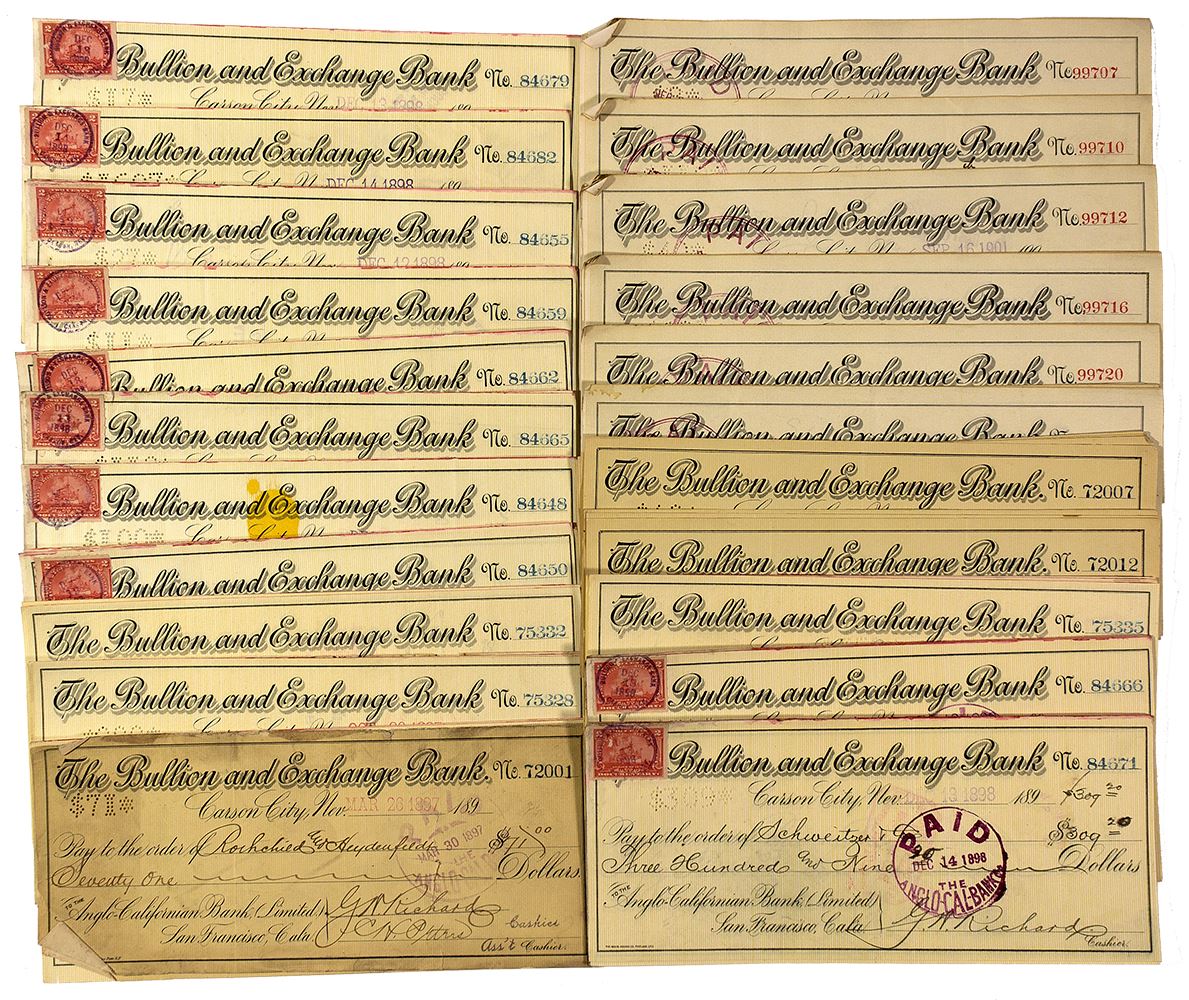 Bullion and Exchange Bank No. 84679
$17*
Carson City, Nev. DEC 13 1898 189
Bullion and Exchange Bank No. 84682
DEC 14 1898 189
Bullion and Exchange Bank No. 84655
Carson City, Nev. DEC 12 1898 189
Bullion and Exchange Bank No. 84659
$11*
Bullion and Exchange Bank No. 84662
Bullion and Exchange Bank No. 84665
DEC 13 1898
Bullion and Exchange Bank No. 84648
$100*
Bullion and Exchange Bank No. 84650
The Bullion and Exchange Bank No. 75332
The Bullion and Exchange Bank No. 75328
The Bullion and Exchange Bank. No. 72001
$71*
Carson City, Nev. MAR 26 1897 189
Pay to the order of Rothchild & Heydenfeldt $71 00
Seventy One Dollars
MAR 30 1897
THE
TO THE
Anglo-Californian Bank, (Limited)
San Francisco, Cala.
G W Richard
Cashier
Ass't Cashier.
The Bullion and Exchange Bank No 99707
The Bullion and Exchange Bank No. 99710
PAI
The Bullion and Exchange Bank No. 99712
PAI
SEP 16 1901 190
The Bullion and Exchange Bank No. 99716
The Bullion and Exchange Bank No. 99720
The Bullion and Exchange Bank
The Bullion and Exchange Bank. No. 72007
The Bullion and Exchange Bank. No. 72012
The Bullion and Exchange Bank No. 75335
Bullion and Exchange Bank No. 84666
Bullion and Exchange Bank No. 84671
$309*
Carson City, Nev. DEC 13 1898 189 $309 20
Pay to the order of Schweitzer $309 20
Three Hundred and Nine Dollars
PAID
DEC 14 1898
THE
ANGLO-CAL-BANK
TO THE
Anglo-Californian Bank, (Limited)
San Francisco, Cala.
G. W. Richard
Cashier.